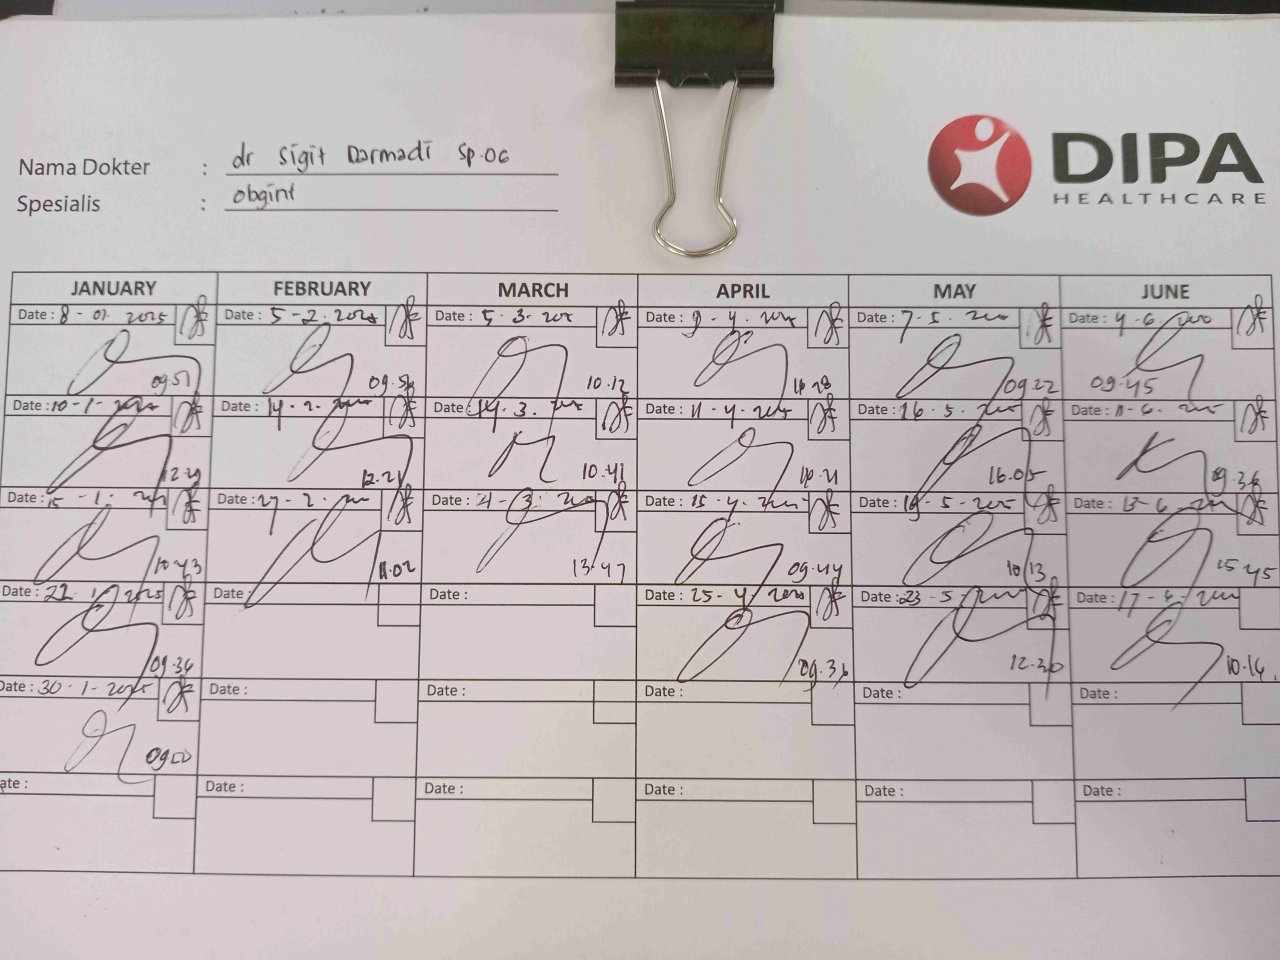 Nama Dokter : dr Sigit Darmadi Sp.OG
Spesialis : obgint
DIPA
HEALTHCARE
JANUARY FEBRUARY MARCH APRIL MAY JUNE
Date : 8 - 01 2025 Date : 5 - 2 . 2025 Date : 5 . 3 . Date : 9 - 4 . Date : 7 - 5 . Date : 4 - 6 .
09.51 09.54 10.12 09.22 09.45
Date : 10 - 1 - 2025 Date : 14 . 2 . Date : 14 . 3 . Date : 11 - 4 - 2025 Date : 16 . 5 . Date : 11 - 6 .
12.21 10.41 16.05 09.36
Date : 15 - 1 . Date : 27 - 2 . Date : 21 - 3 . Date : 15 - 4 . Date : 19 - 5 - 2025 Date : 13 - 6 .
10.43 11.02 13.47 09.44 10.13 15.45
Date : 22 . 1 . 2025 Date : Date : Date : 25 - 4 - 2025 Date : 23 - 5 . Date : 17 - 6 -
09.36 09.36 12.30 10.16
Date : 30 . 1 - 2025 Date : Date : Date : Date : Date :
09.00
ate : Date : Date : Date : Date : Date :